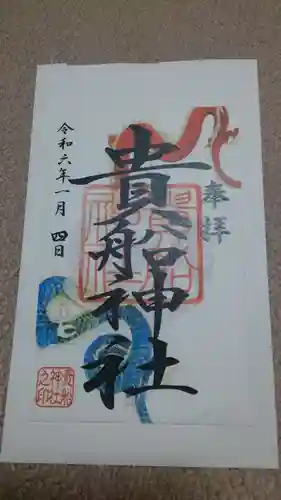 奉拝
貴船神社
令和六年一月四日
貴船
神社
之印